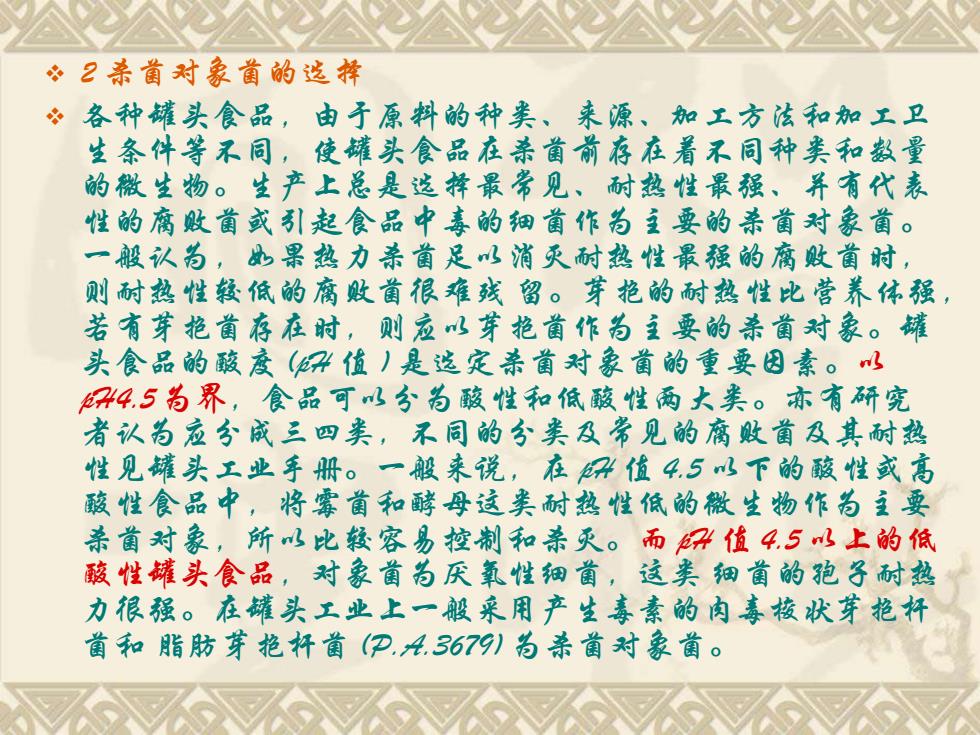 ❖ 2 杀菌对象菌的选择
❖ 各种罐头食品，由于原料的种类、来源、加工方法和加工卫
生条件等不同，使罐头食品在杀菌前存在着不同种类和数量
的微生物。生产上总是选择最常见、耐热性最强、并有代表
性的腐败菌或引起食品中毒的细菌作为主要的杀菌对象菌。
一般认为，如果热力杀菌足以消灭耐热性最强的腐败菌时，
则耐热性较低的腐败菌很难残 留。芽孢的耐热性比营养体强，
若有芽孢菌存在时，则应以芽孢菌作为主要的杀菌对象。罐
头食品的酸度(pH 值 )是选定杀菌对象菌的重要因素。以
pH4.5为界，食品可以分为酸性和低酸性两大类。亦有研究
者认为应分成三四类，不同的分类及常见的腐败菌及其耐热
性见罐头工业手册。一般来说，在 pH 值 4.5 以下的酸性或高
酸性食品中，将霉菌和酵母这类耐热性低的微生物作为主要
杀菌对象，所以比较容易控制和杀灭。而 pH 值 4.5 以上的低
酸性罐头食品，对象菌为厌氧性细菌，这类 细菌的孢子耐热
力很强。在罐头工业上一般采用产生毒素的肉毒梭状芽孢杆
菌和 脂肪芽孢杆菌 (P.A.3679)为杀菌对象菌。